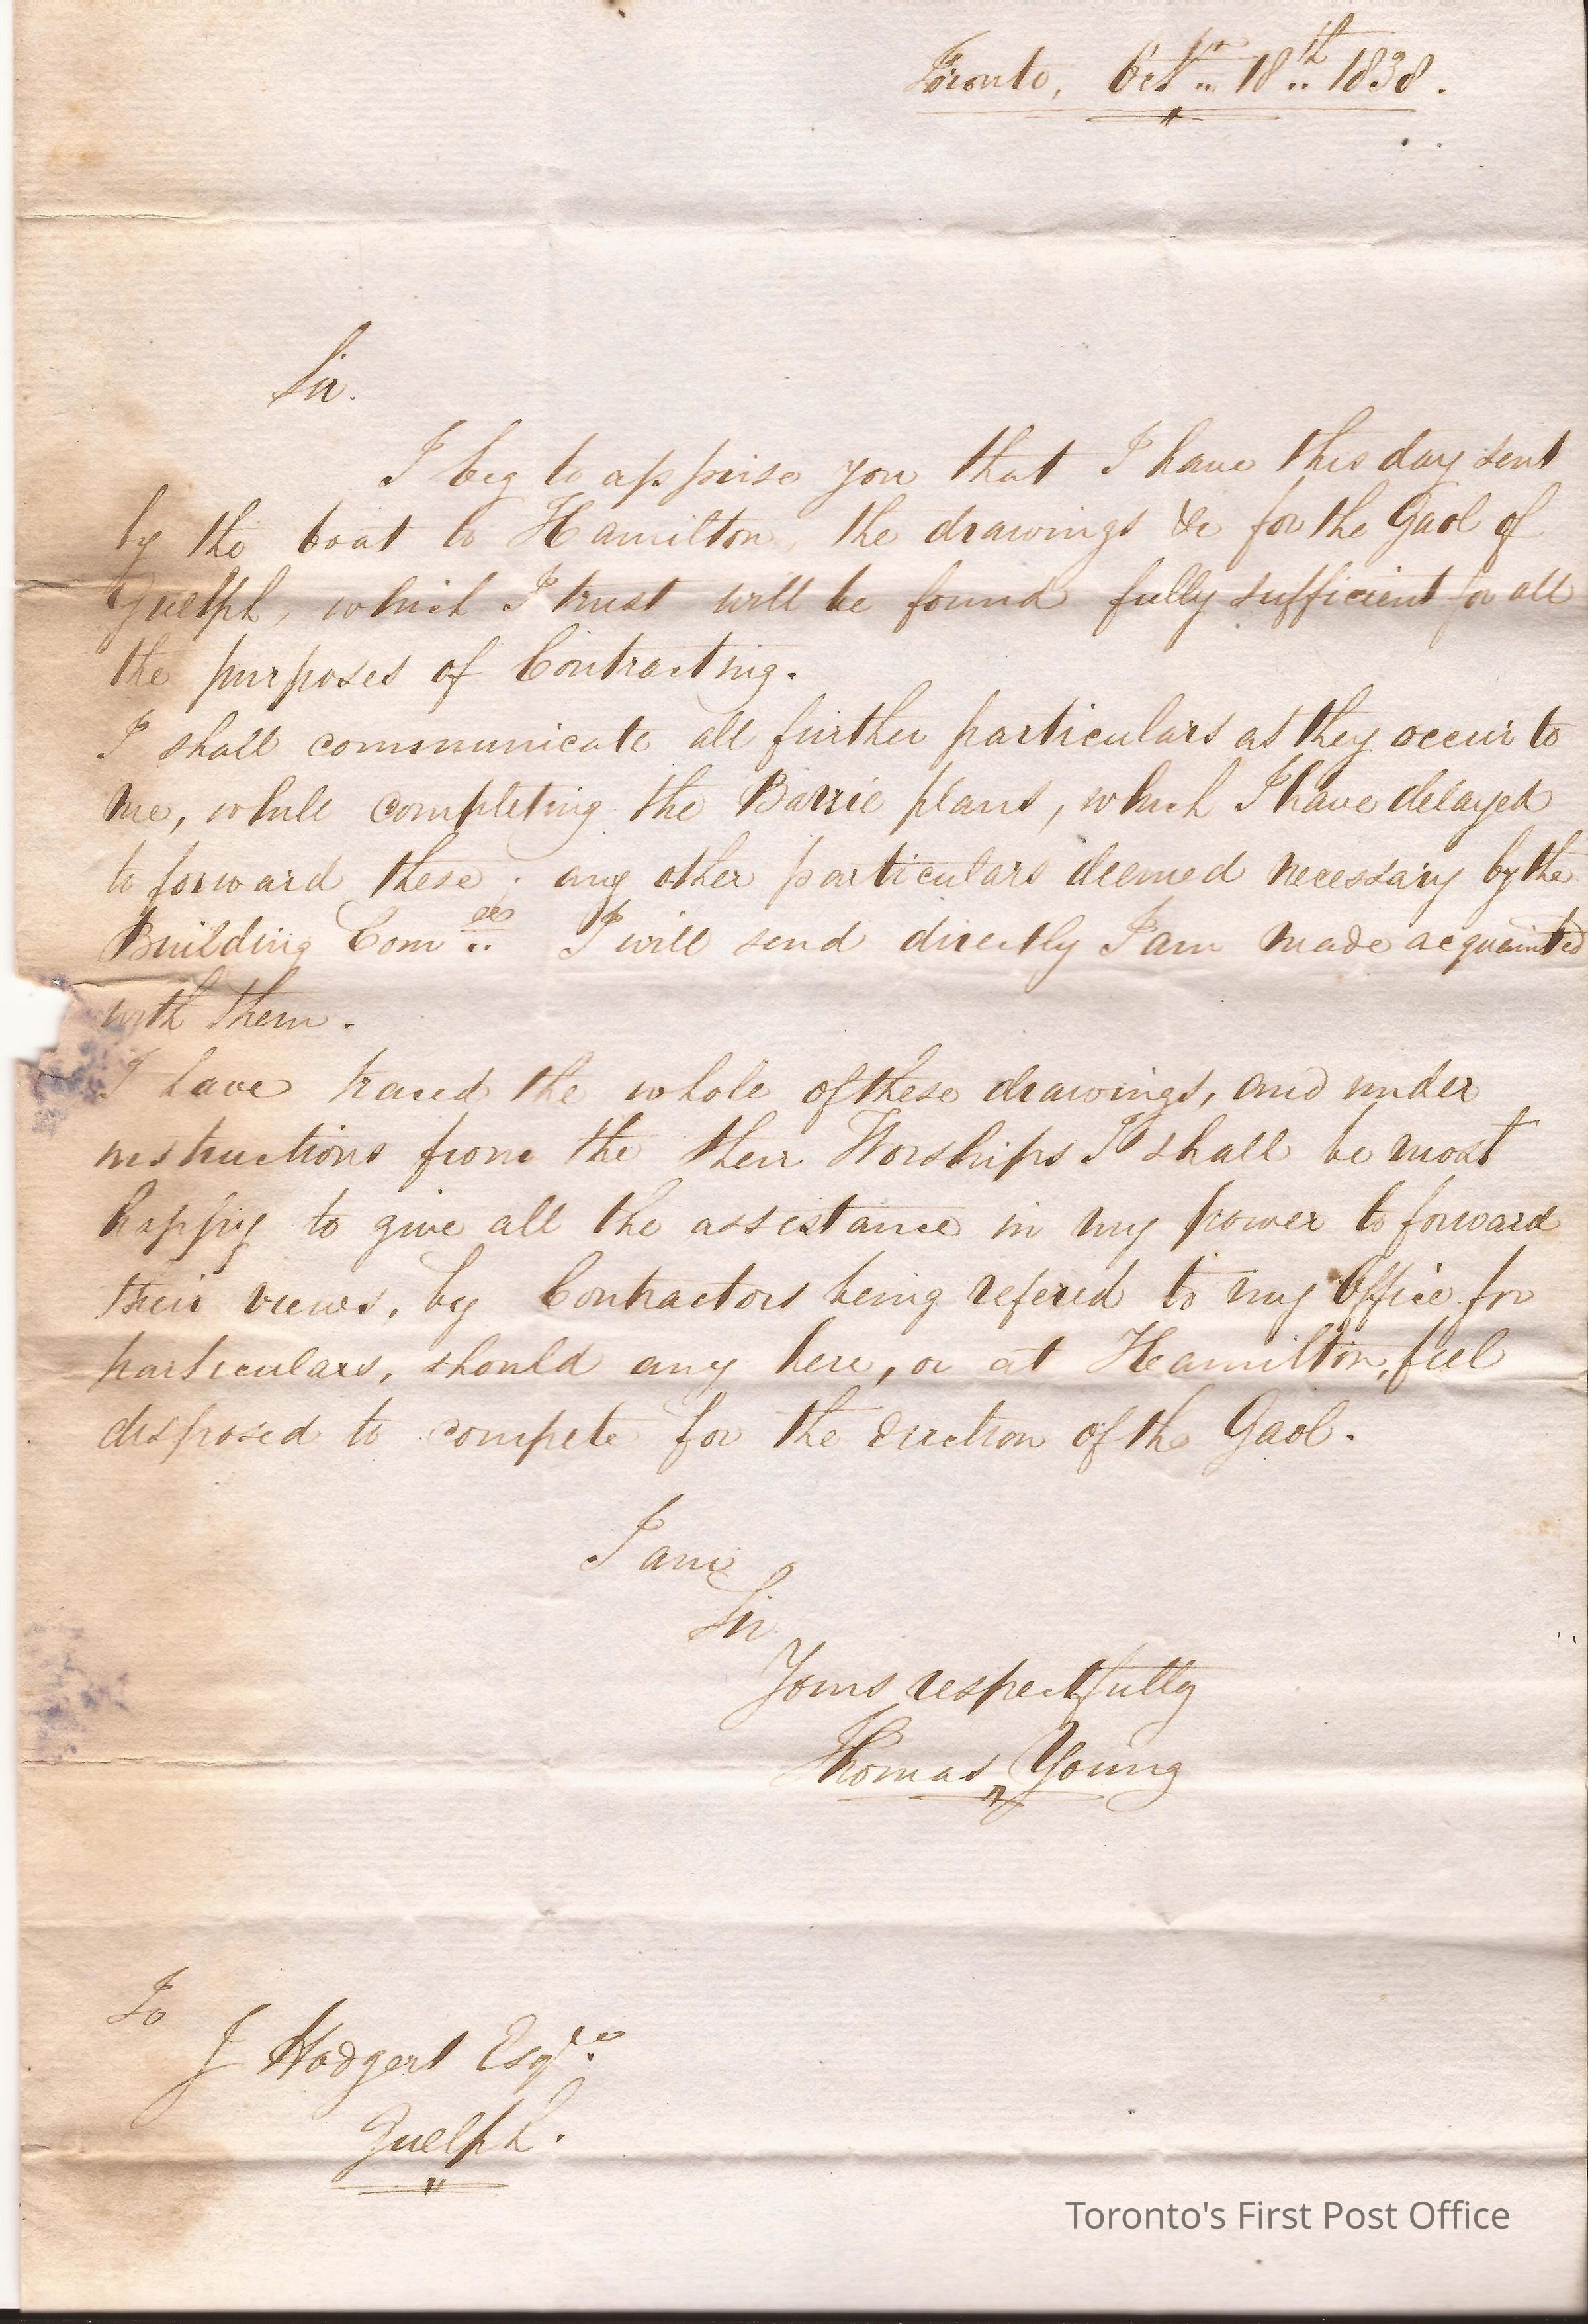 Toronto, Octr 18th 1838.
Sir.
I beg to apprise you that I have this day sent
by the boat to Hamilton, the drawings &c for the Gaol of
Guelph, which I trust will be found fully sufficient for all
the purposes of Contracting.
I shall communicate all further particulars as they occur to
me, while completing the Barrie plans, which I have delayed
to forward these. any other particulars deemed necessary by the
Building Com I will send directly I am made acquainted
with them.
I have traced the whole of these drawings, and under
instructions from the their Worships I shall be most
happy to give all the assistance in my power to forward
their views, by Contractors being refered to my Office for
particulars, should any here, or at Hamilton, feel
disposed to compete for the Erection of the Gaol.
I am
Sir
Yours respectfully
Thomas Young
To
J Hodgert Esqre
Guelph.
Toronto's First Post Office